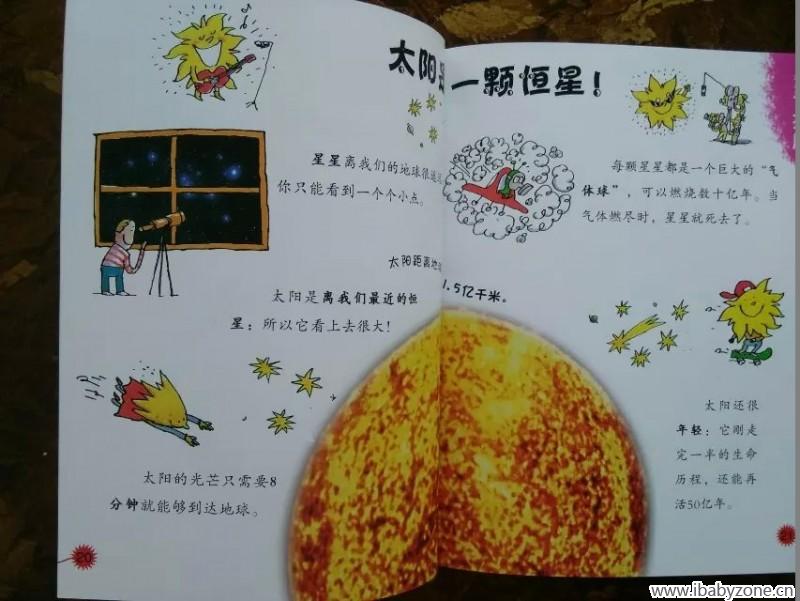 太阳是一颗恒星!
星星离我们的地球很遥
你只能看到一个个小点。
太阳距离地
1.5亿千米。
太阳是离我们最近的恒
星:所以它看上去很大!
太阳的光芒只需要8
分钟就能够到达地球。
20
每颗星星都是一个巨大的“气
体球”,可以燃烧数十亿年。当
气体燃尽时,星星就死去了。
太阳还很
年轻:它刚走
完一半的生命
历程,还能再
活50亿年。
21
www.ibabyzone.cn